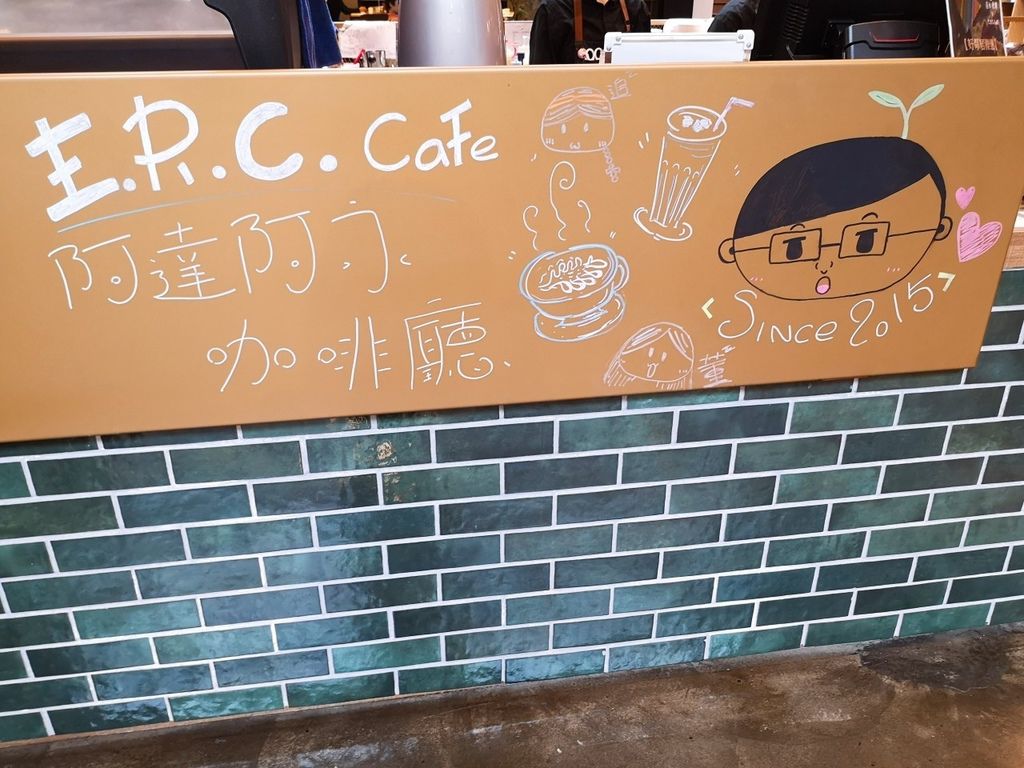 E.R.C. Cafe
阿達阿永
咖啡廳
SINCE 2015
董